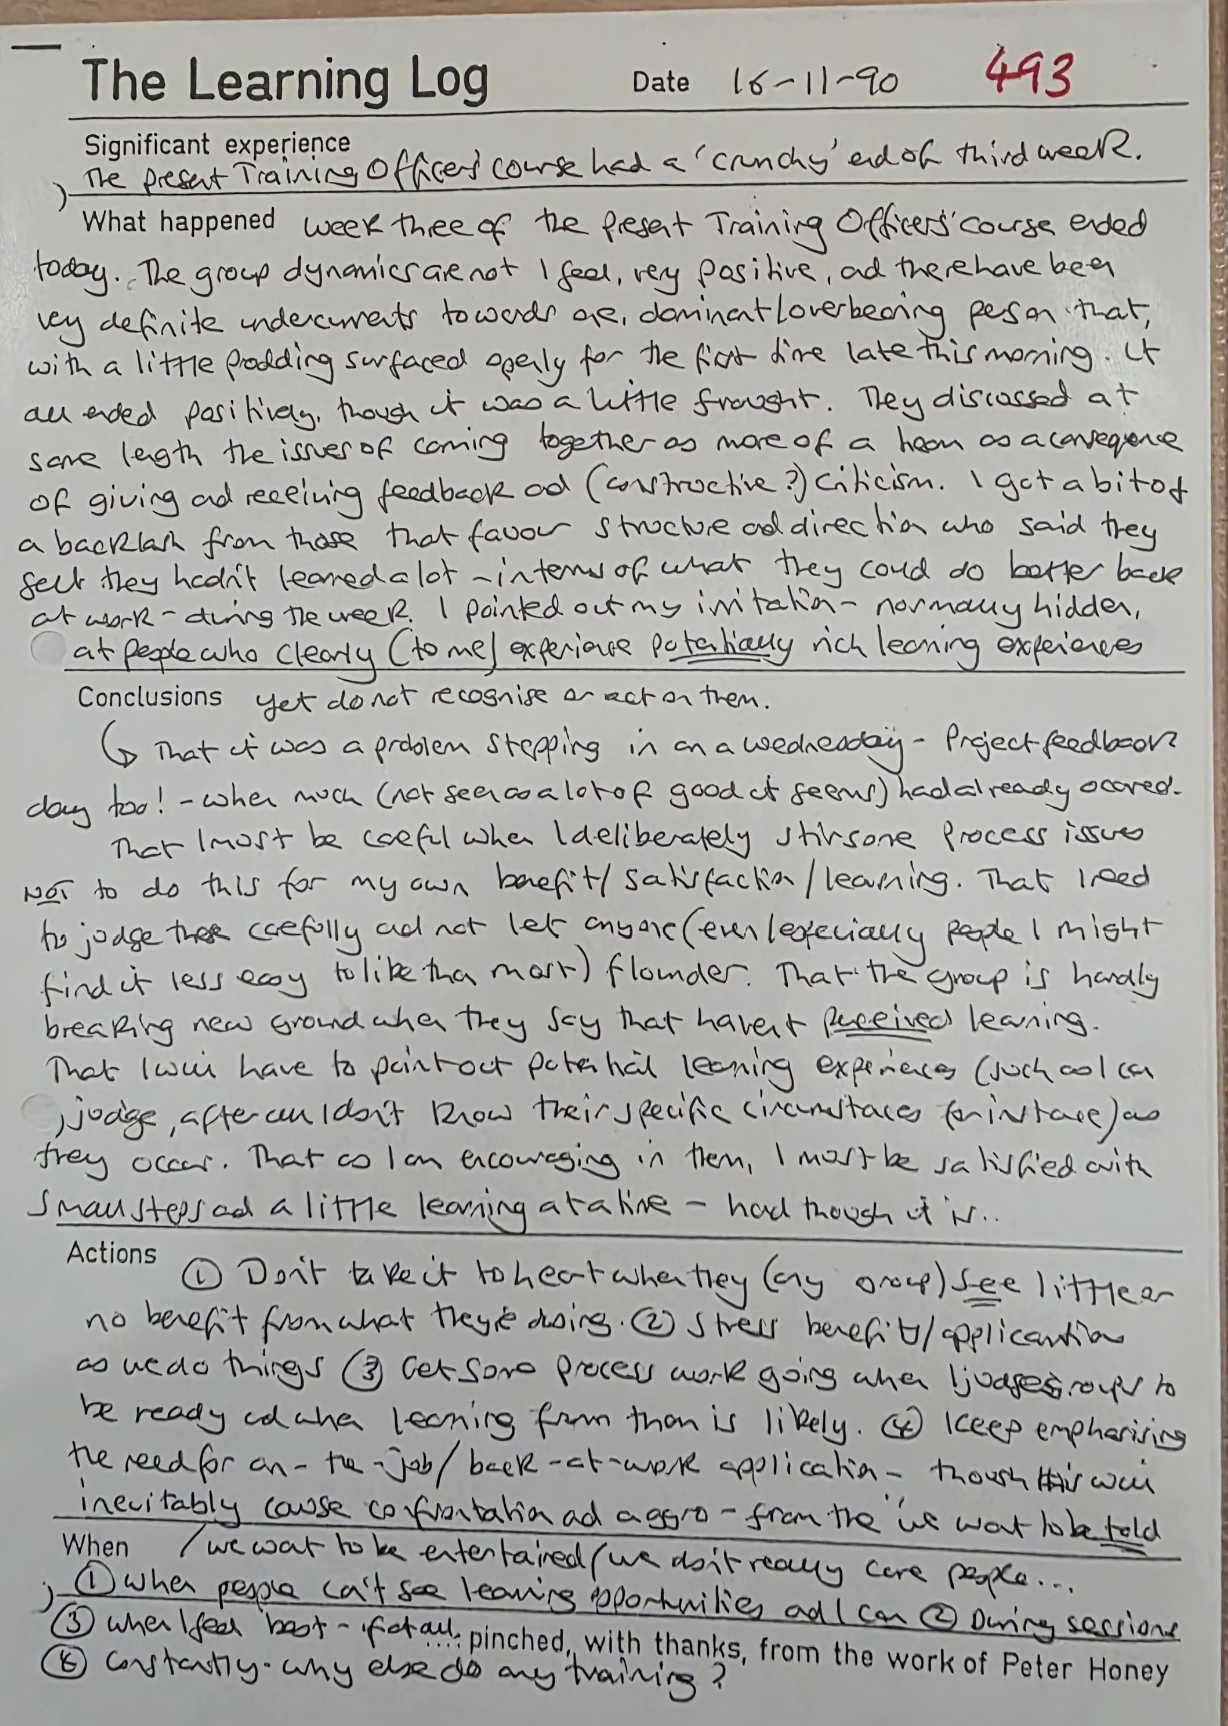 The Learning Log Date 16-11-90 493
Significant experience
The present Training Officers' course had a 'crunchy' end of third week.
What happened week three of the present Training Officers' course ended
today. The group dynamics are not I feel, very positive, and there have been
very definite undercurrents towards one, dominant/overbearing person that,
with a little prodding surfaced openly for the first time late this morning. It
all ended positively, though it was a little fraught. They discussed at
some length the issues of coming together as more of a team as a consequence
of giving and receiving feedback and (constructive?) criticism. I got a bit of
a backlash from those that favour structure and direction who said they
felt they hadn't learned a lot - in terms of what they could do better back
at work - during the week. I pointed out my irritation - normally hidden,
at people who clearly (to me) experience potentially rich learning experiences
Conclusions yet do not recognise or act on them.
↳ That it was a problem stepping in on a Wednesday - Project feedback
day too! - when much (not seen as a lot of good it seems) had already occured.
That I must be careful when I deliberately stir some process issues
NOT to do this for my own benefit/satisfaction/learning. That I need
to judge these carefully and not let anyone (even/especially people I might
find it less easy to like than most) flounder. That the group is hardly
breaking new ground when they say that haven't perceived learning.
That I will have to point out potential learning experiences (such as I can
judge, after all I don't know their specific circumstances for instance) as
they occur. That as I am encouraging in them, I must be satisfied with
small steps and a little learning at a time - hard though it is..
Actions ① Don't take it to heart when they (any group) see little or
no benefit from what they're doing. ② Stress benefits/application
as we do things ③ Get some process work going when I judge groups to
be ready and when learning from them is likely. ④ Keep emphasising
the need for on-the-job/back-at-work application - though this will
inevitably cause confrontation and aggro - from the 'we want to be told
When /we want to be entertained/we don't really care people...
① When people can't see learning opportunities and I can ② During sessions
③ When I feel best - if at all. .... pinched, with thanks, from the work of Peter Honey
④ Constantly - why else do any training?